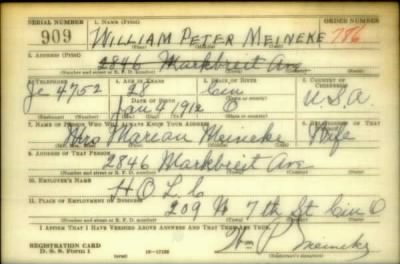 SERIAL NUMBER 1. NAME (Print) ORDER NUMBER
909 WILLIAM PETER MEINEKE 786
(First) (Middle) (Last)
2. ADDRESS (Print)
2846 Markbreit Ave
(Number and street or R. F. D. number) (Town) (County) (State)
3. TELEPHONE 4. AGE IN YEARS 5. PLACE OF BIRTH 6. COUNTRY OF CITIZENSHIP
Je 4752 28 Cin
DATE OF BIRTH
Jan 4 1912 O U.S.A.
7. NAME OF PERSON WHO WILL ALWAYS KNOW YOUR ADDRESS 8. RELATIONSHIP OF THAT PERSON
Mrs Marian Meineke Wife
9. ADDRESS OF THAT PERSON
2846 Markbreit Ave
(Number and street or R. F. D. number) (Town) (County) (State)
10. EMPLOYER'S NAME
H O L C
11. PLACE OF EMPLOYMENT OR BUSINESS
209 W 7th St Cin O
(Number and street or R. F. D. number) (Town) (County) (State)
I AFFIRM THAT I HAVE VERIFIED ABOVE ANSWERS AND THAT THEY ARE TRUE.
REGISTRATION CARD
D. S. S. Form 1 Wm P. Meineke
(Registrant's signature)